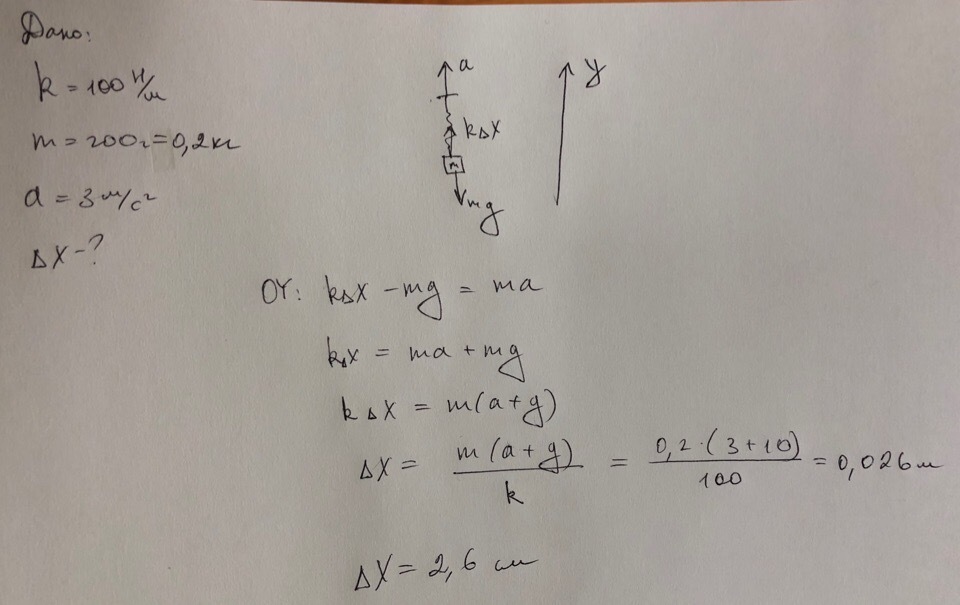 Дано:
k = 100 Н/м
m = 200г = 0,2 кг
a = 3 м/с²
Δx - ?
a
y
kΔx
m
mg
OY: kΔx - mg = ma
kΔx = ma + mg
kΔx = m(a+g)
Δx = m(a+g)/k = 0,2·(3+10)/100 = 0,026 м
Δx = 2,6 см